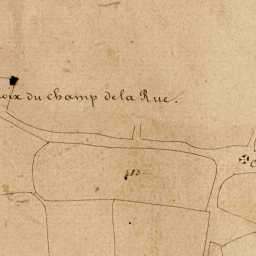 oix du champ de la Rue.
413